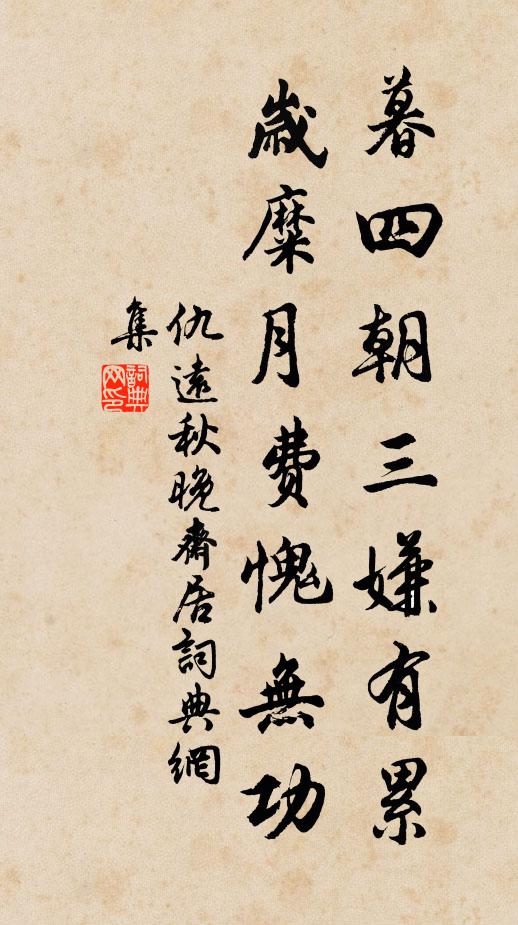 暮四朝三嫌有累
歲糜月費愧無功
仇遠秋晚齋居詞典網
集
詞典
网印